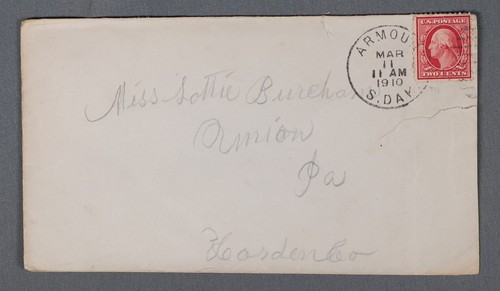 ARMOUR
MAR
11
11 AM
1910
S.DAK.
U.S. POSTAGE
TWO CENTS
Miss Lottie
Union
Ia
Hardin Co